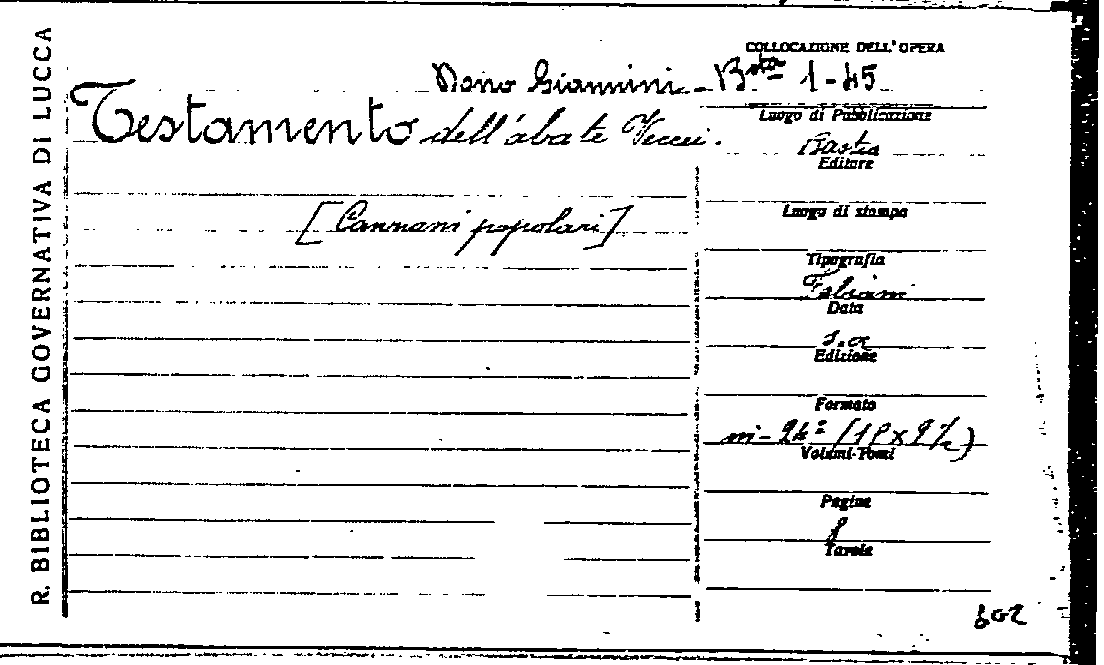 R. BIBLIOTECA GOVERNATIVA DI LUCCA
COLLOCAZIONE DELL'OPERA
Dono Giannini - Bsta 1-45
Testamento dell'abate Veccei.
Luogo di Pubblicazione
Bastia
Editore
[Canzoni popolari]
Luogo di stampa
Tipografia
Fabiani
Data
s.a
Edizione
Formato
in-24º (18x9½)
Volumi-Tomi
Pagine
8
Tavole